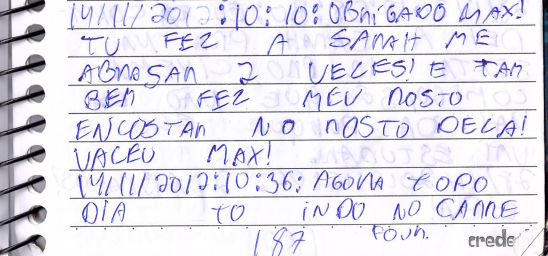 14/11/2012:10:10:OBRIGADO MAX!
TU FEZ A SARAH ME
ABRASAR 2 VECES! E TAM
BEM FEZ MEU ROSTO
ENCOSTAR NO ROSTO DELA!
VALEU MAX!
14/11/2012:10:36: AGORA TODO
DIA TO INDO NO CARRE
FOUR.
187
crede